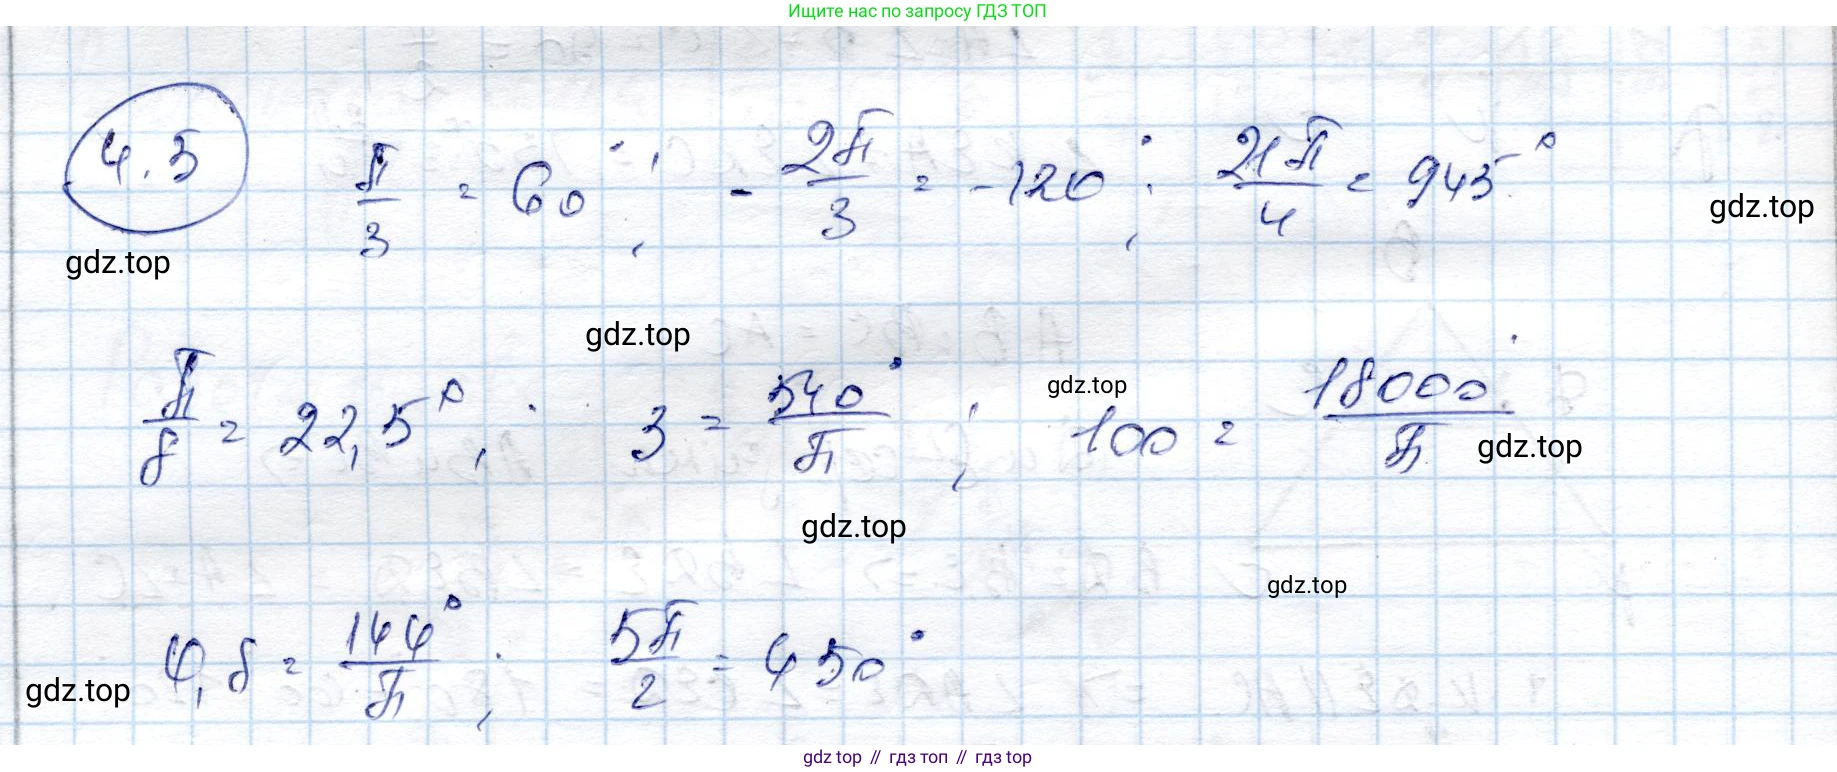 Ищите нас по запросу ГДЗ ТОП
4.5 π/3 = 60°; -2π/3 = -120°; 21π/4 = 945°
gdz.top
gdz.top
gdz.top
π/8 = 22,5°; 3 = 540°/π; 100 = 18000°/π
gdz.top
gdz.top
gdz.top
gdz.top
0,8 = 144°/π; 5π/2 = 450°
gdz.top
gdz top // гдз топ // гдз top